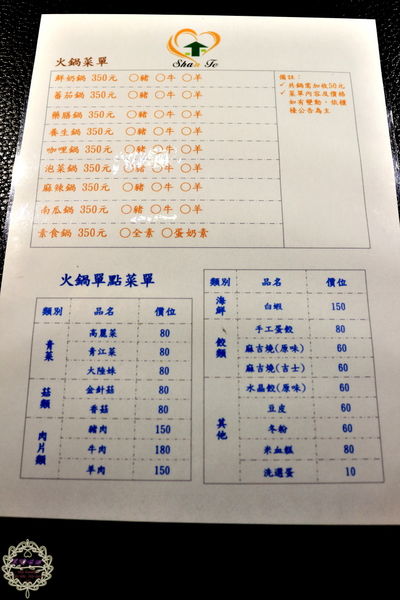 Shan Te
火鍋菜單
鮮奶鍋 350元 ○豬 ○牛 ○羊
蕃茄鍋 350元 ○豬 ○牛 ○羊
藥膳鍋 350元 ○豬 ○牛 ○羊
養生鍋 350元 ○豬 ○牛 ○羊
咖哩鍋 350元 ○豬 ○牛 ○羊
泡菜鍋 350元 ○豬 ○牛 ○羊
麻辣鍋 350元 ○豬 ○牛 ○羊
南瓜鍋 350元 ○豬 ○牛 ○羊
素食鍋 350元 ○全素 ○蛋奶素
備註：
✓ 共鍋需加收50元
✓ 菜單內容及價格
如有變動，依櫃
檯公告為主
火鍋單點菜單
類別 品名 價位
青菜 高麗菜 80
青江菜 80
大陸妹 80
菇類 金針菇 80
香菇 80
肉片類 豬肉 150
牛肉 180
羊肉 150
類別 品名 價位
海鮮 白蝦 150
餃類 手工蛋餃 80
麻吉燒(原味) 60
麻吉燒(吉士) 60
水晶餃(原味) 60
其他 豆皮 60
冬粉 60
米血糕 80
洗選蛋 10